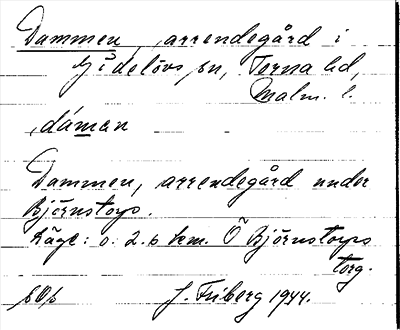 Dammen, arrendegård i
Gödelövs sn, Torna hd,
Malm. l.
dámən
Dammen, arrendegård under
Björnstorp.
Läge: o. 2.6 km. Ö Björnstorps
torg.
J. Friberg 1944.